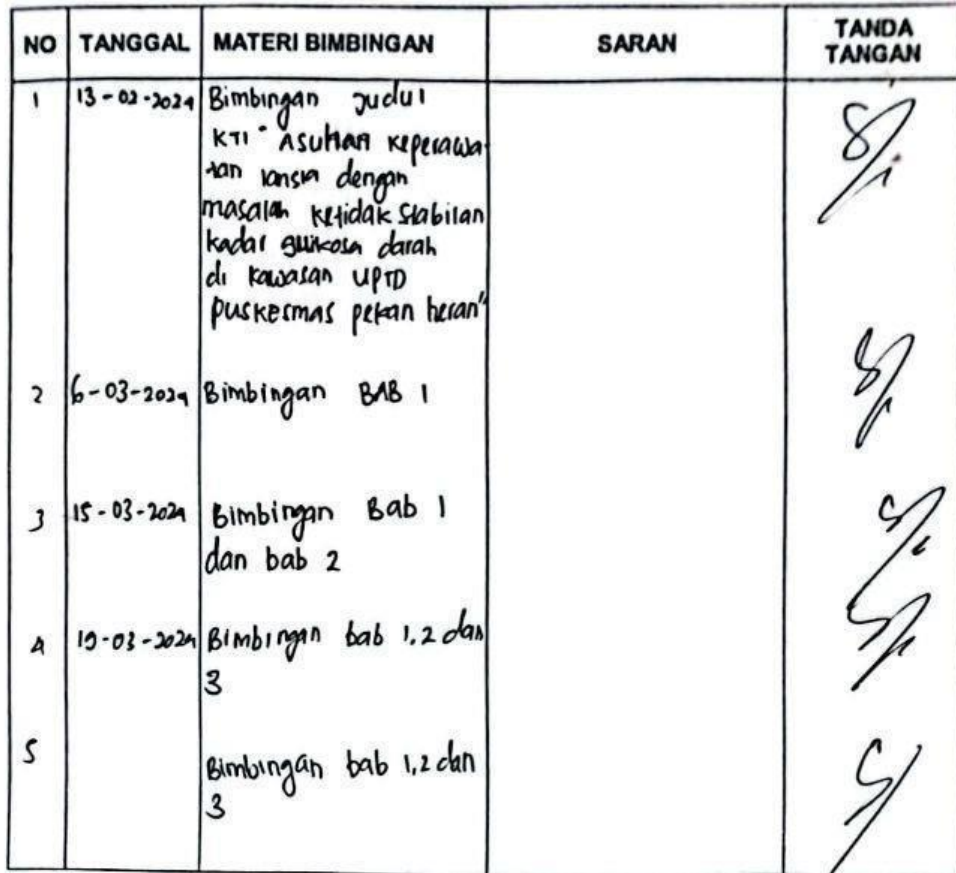 NO TANGGAL MATERI BIMBINGAN SARAN TANDA TANGAN
1 13-02-2024 Bimbingan Judul
KTI "Asuhan Keperawa-
tan lansia dengan
masalah ketidak stabilan
kadar glukosa darah
di kawasan UPTD
Puskesmas pekan heran"
2 6-03-2024 Bimbingan BAB 1
3 15-03-2024 Bimbingan Bab 1
dan bab 2
4 19-03-2024 Bimbingan bab 1,2 dan
3
5 Bimbingan bab 1,2 dan
3